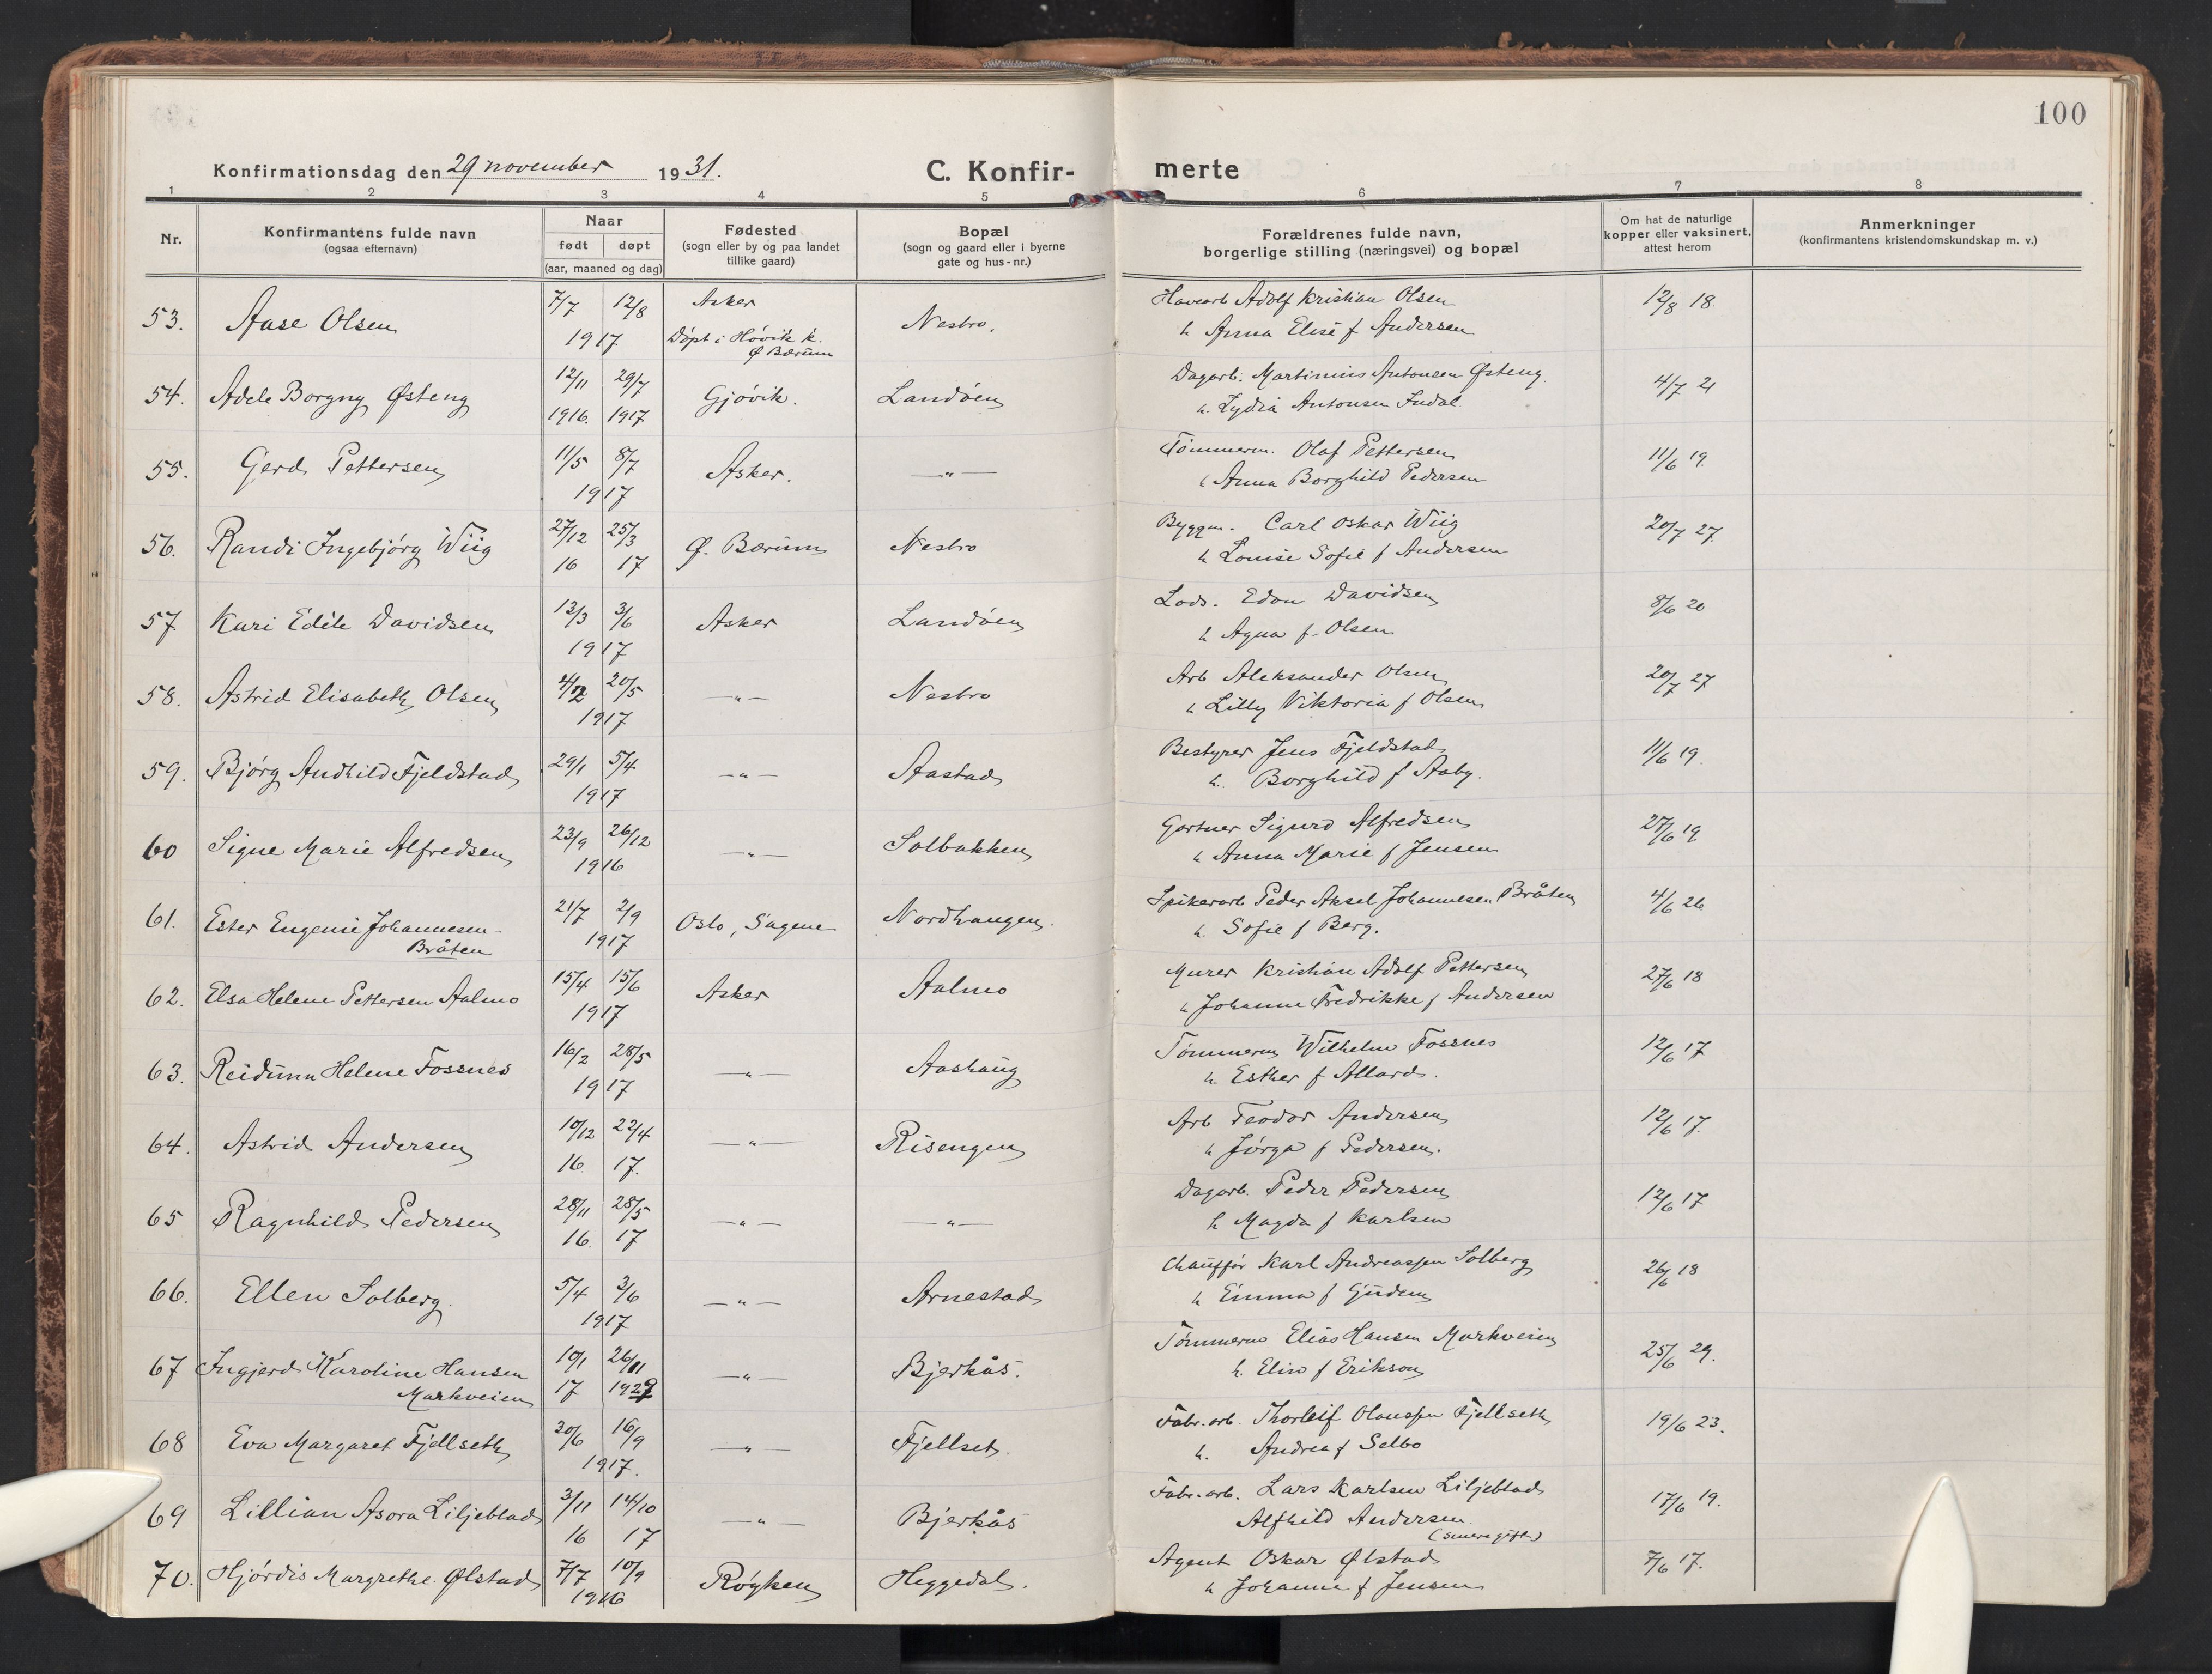 100
Konfirmationsdag den 29 november 1931.
C. Konfir-
merte
1 2 3 4 5 6 7 8
Nr.
Konfirmantens fulde navn
(ogsaa efternavn)
Naar
født døpt
(aar, maaned og dag)
Fødested
(sogn eller by og paa landet
tillike gaard)
Bopæl
(sogn og gaard eller i byerne
gate og hus-nr.)
Forældrenes fulde navn,
borgerlige stilling (næringsvei) og bopæl
Om hat de naturlige
kopper eller vaksinert,
attest herom
Anmerkninger
(konfirmantens kristendomskundskap m. v.)
53. Aase Olsen 7/7 12/8 1917 Asker Nesbro. Havearb Adolf Kristian Olsen 12/8 18.
Døpt i Høvik k. Ø Bærum
h Anna Elise f Andersen
54. Adele Borgny Østeng 12/11 1916. 29/7 1917 Gjøvik. Landøen Dagarb. Martinius Antonsen Østeng. 4/7 21
h. Lydia Antonsen Indal.
55. Gerd Pettersen 11/5 8/7 1917 Asker. —"— Tømmerm. Olaf Pettersen 11/6 19.
h Anna Borghild Pedersen
56. Randi Ingebjørg Wiig 27/12 16 25/3 17 Ø. Bærum Nesbro Byggm. Carl Oskar Wiig 20/7 27
h Louise Sofie f Andersen
57 Kari Edele Davidsen 13/3 3/6 1917 Asker Landøen Lods. Edon Davidsen 8/6 20
h Agna f. Olsen
58. Astrid Elisabeth Olsen 4/2 20/5 1917 —"— Nesbro Arb Aleksander Olsen 20/7 27
h Lilly Viktoria f Olsen
59. Bjørg Andhild Fjeldstad 29/1 5/4 1917 —"— Aastad Bestyrer Jens Fjeldstad 11/6 19.
h. Borghild f Aaby.
60 Signe Marie Alfredsen 23/9 26/12 1916 —"— Solbakken Gartner Sigurd Alfredsen 27/6 19.
h Anna Marie f Jensen
61. Ester Eugenie Johannesen 21/7 2/9 1917 Oslo, Sagene Nordhaugen. Spikerarb Peder Aksel Johannesen Bråten 4/6 26
Bråten
h. Sofie f Berg.
62. Elsa Helene Pettersen Aalmo 15/4 15/6 1917 Asker Aalmo Murer Kristian Adolf Pettersen 27/6 18
h Johanne Fredrikke f Andersen
63. Reidunn Helene Fossnes 16/2 28/5 1917 —"— Aashaug Tømmerm Wilhelm Fossnes 12/6 17
h. Esther f Allard.
64. Astrid Andersen 10/12 16. 22/4 17. —"— Risengen Arb Teodor Andersen 12/6 17.
h Jørga f Pedersen.
65 Ragnhild Pedersen 28/11 16. 28/5 17 —"— —"— Dagarb. Peder Pedersen 12/6 17
h Magda f Karlsen
66. Ellen Solberg. 5/4 3/6 1917 —"— Arnestad Chauffør Karl Andreassen Solberg 26/6 18
h Emma f Gjuden
67 Ingjerd Karoline Hansen 10/1 17 26/11 1927 —"— Bjerkås. Tømmerm Elias Hansen Markveien 25/6 29.
Markveien
h. Elin f Erikson
68 Eva Margaret Fjellseth 20/6 16/9 1917. —"— Fjellset. Fabr. arb. Thorleif Olaussen Fjellseth 19/6 23.
h. Andrea f Selbo
69 Lillian Asora Liljeblad 3/11 16 14/10 17 —"— Bjerkås Fabr. arb. Lars Karlsen Liljeblad 17/6 19.
Alfhild Andersen
(senere gift)
70. Hjørdis Margrethe Ølstad 7/7 10/9 1916 Røyken Heggedal. Agent Oskar Ølstad 7/6 17.
h Johanne f Jensen